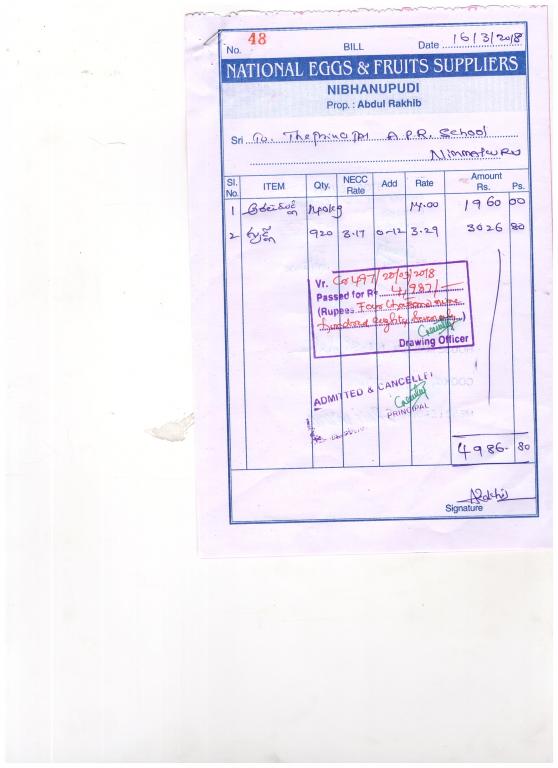 No. 48 BILL Date 16/3/2018
NATIONAL EGGS & FRUITS SUPPLIERS
NIBHANUPUDI
Prop. : Abdul Rakhib
Sri To. The principal A.P.R. School
Nimmakuru
Sl. No. ITEM Qty. NECC Rate Add Rate Amount Rs. Ps.
1 140kg 14.00 1960 00
2 920 3.17 0-12 3.29 3026 80
Vr. 497/20/03/2018
Passed for Rs. 4,987/-
(Rupees Four thousand nine
hundred eighty seven only)
Drawing Officer
ADMITTED & CANCELLED
PRINCIPAL
4986. 80
Signature